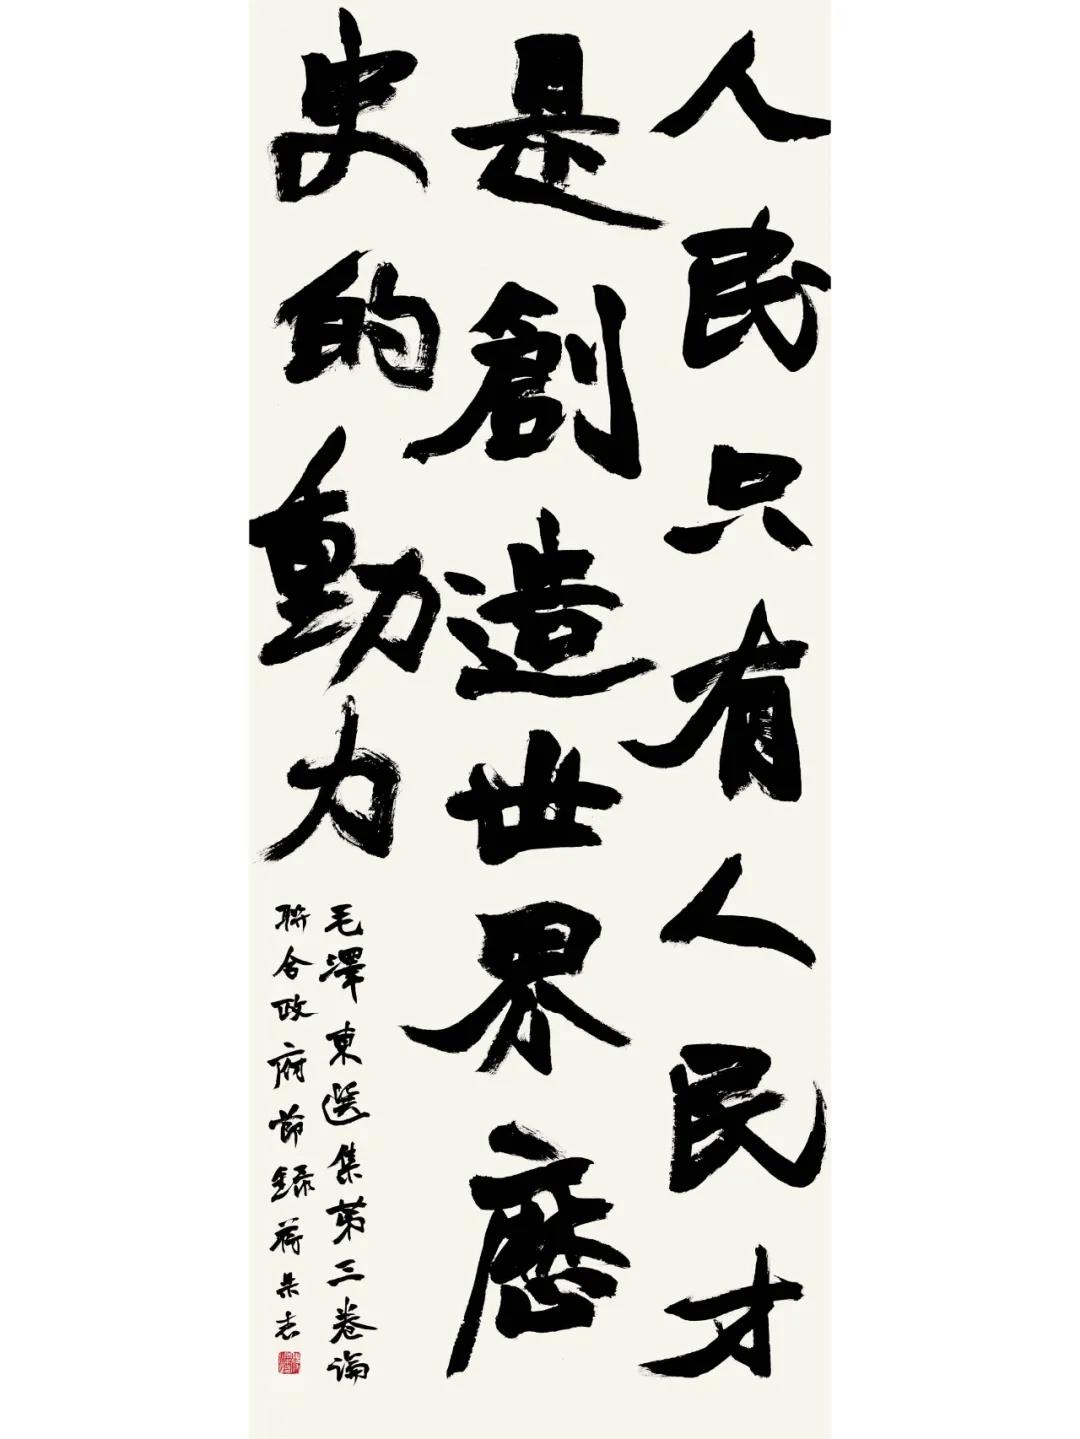 人民只有人民才
是創造世界歷
史的動力
毛澤東選集第三卷論
聯合政府節録蔣